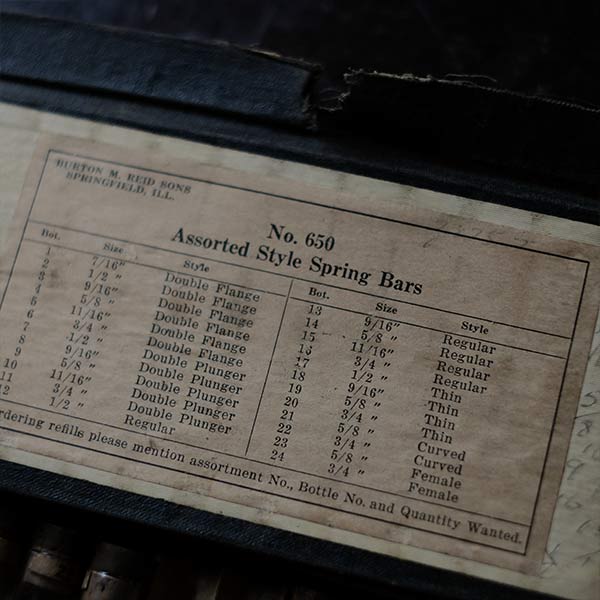 BURTON M. REID SONS
SPRINGFIELD, ILL.
No. 650
Assorted Style Spring Bars
Bot. Size Style
1 7/16" Double Flange
2 1/2 " Double Flange
3 9/16" Double Flange
4 5/8 " Double Flange
5 11/16" Double Flange
6 3/4 " Double Flange
7 1/2 " Double Plunger
8 9/16" Double Plunger
9 5/8 " Double Plunger
10 11/16" Double Plunger
11 3/4 " Double Plunger
12 1/2 " Regular
Bot. Size Style
13 9/16" Regular
14 5/8 " Regular
15 11/16" Regular
16 3/4 " Regular
17 1/2 " Thin
18 9/16" Thin
19 5/8 " Thin
20 3/4 " Thin
21 5/8 " Curved
22 3/4 " Curved
23 5/8 " Female
24 3/4 " Female
rdering refills please mention assortment No., Bottle No. and Quantity Wanted.